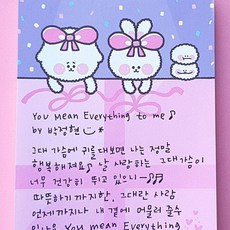 You Mean Everything to me♪
by 박정현 ◡̈*
그대 가슴에 귀를 대보면 나는 정말
행복해져요♪ 날 사랑하는 그대 가슴이
너무 건강히 뛰고 있으니 ~♪♬
따뜻하기까지한, 그대란 사람
언제까지나 내 곁에 머물러 줄수
You Mean Everything